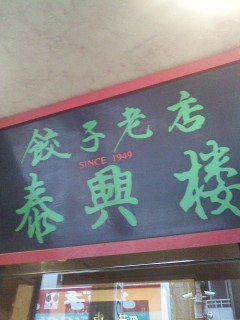 餃子老店
SINCE 1949
泰興楼